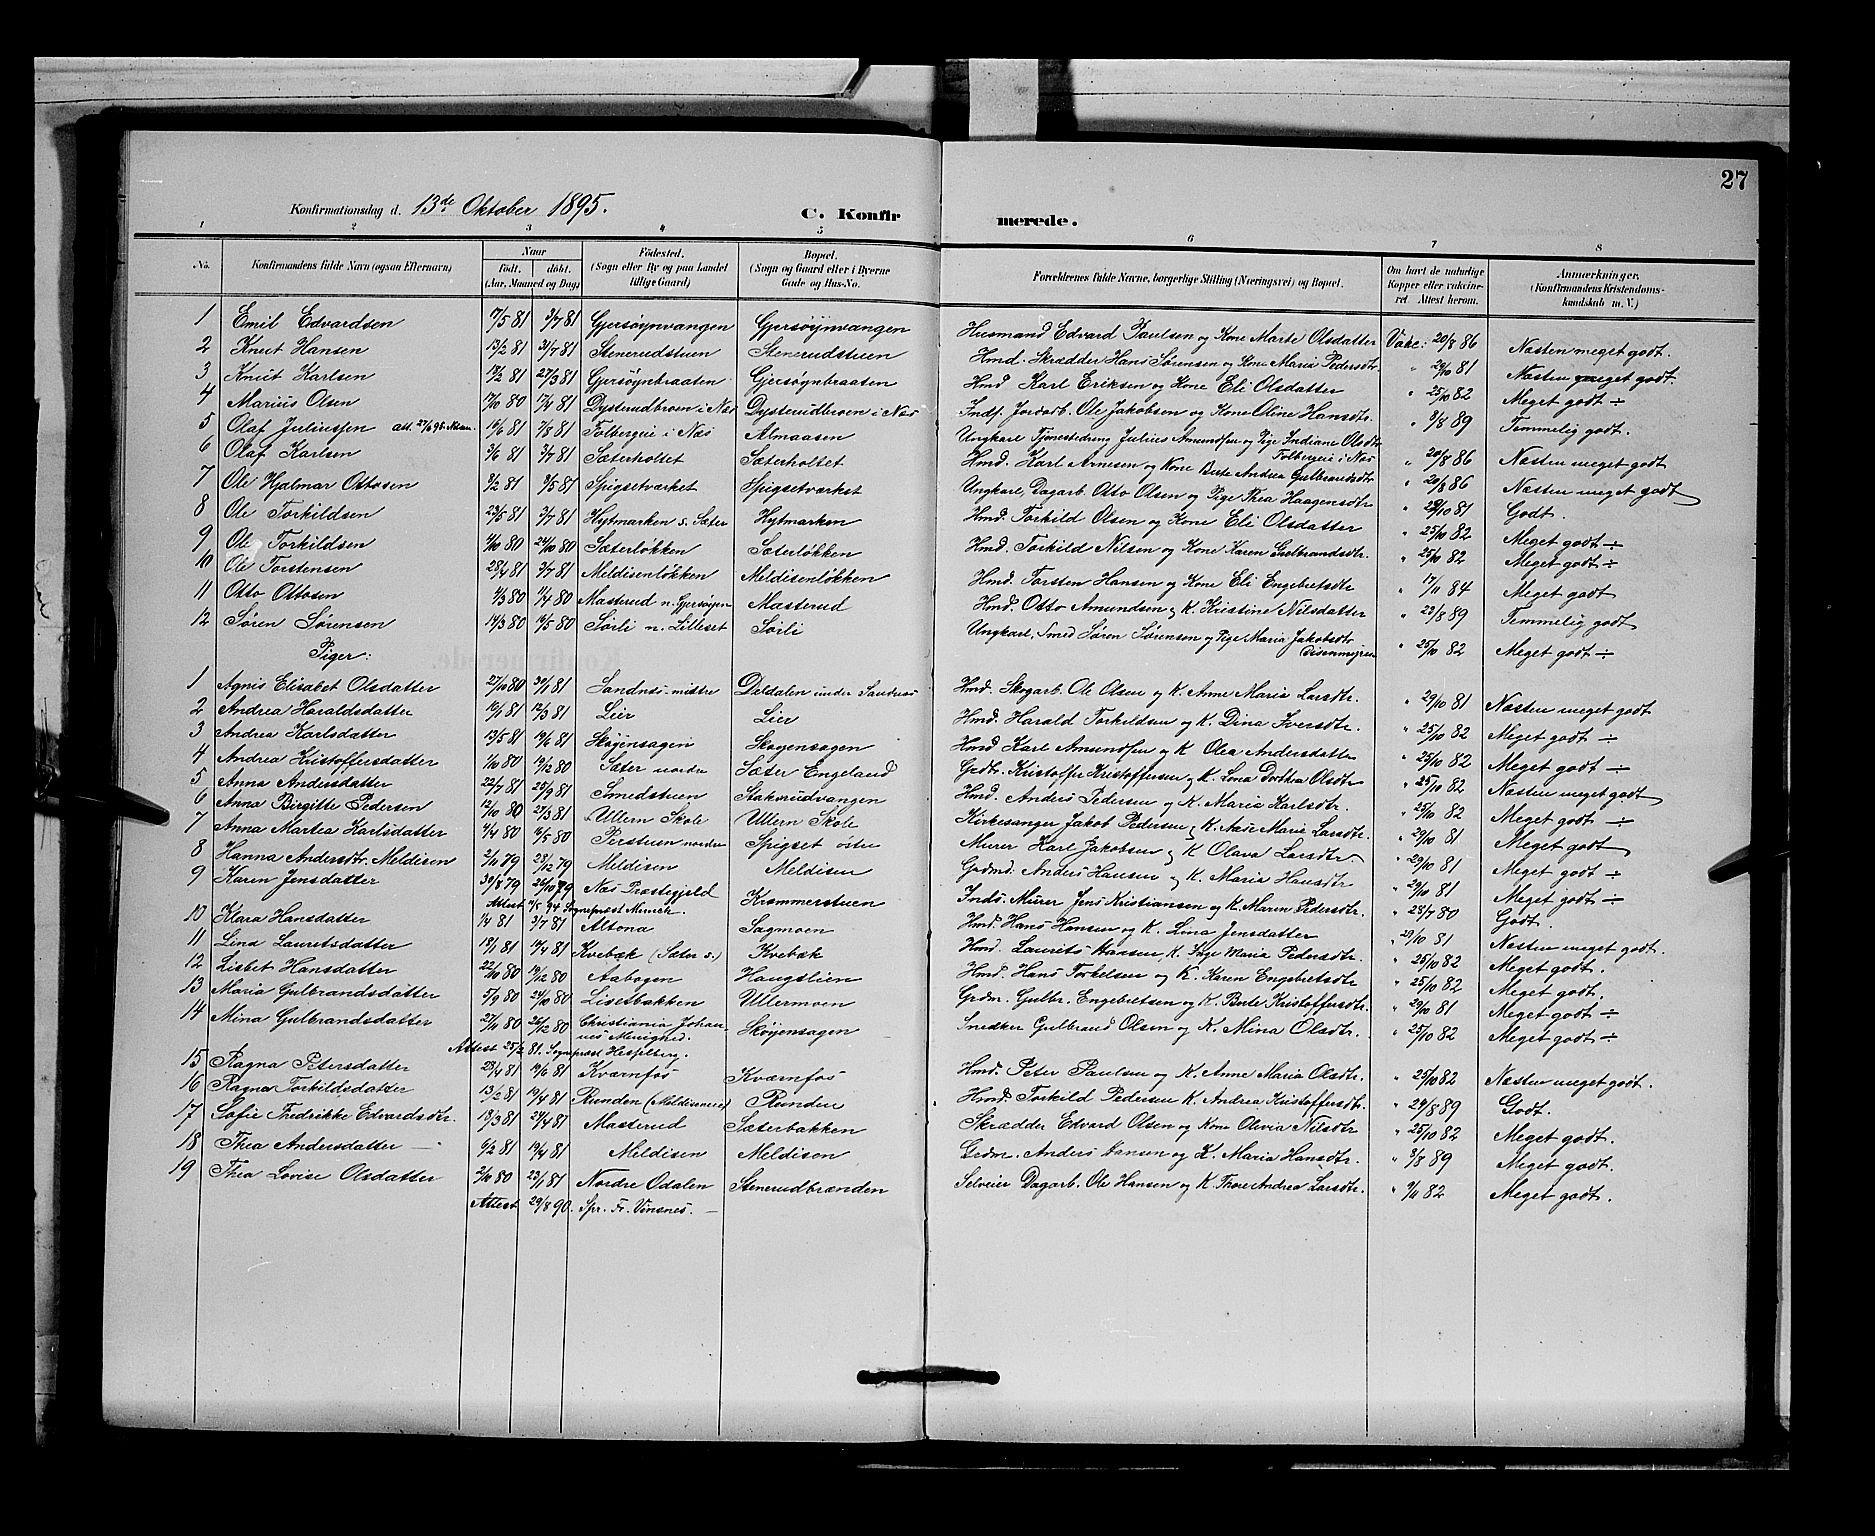 27
Konfirmationsdag d. 13de Oktober 1895. C. Konfirmerede.
1 2 3 4 5 6 7 8
No. Konfirmandens fulde Navn (ogsaa Efternavn) Naar født. døbt. (Aar, Maaned og Dag) Fødested. (Sogn eller By og paa Landet tillige Gaard) Bopæl. (Sogn og Gaard eller i Byerne Gade og Hus-No. Forældrenes fulde Navne, borgerlige Stilling (Næringsvei) og Bopæl. Om havt de naturlige Kopper eller vakcineret. Attest herom. Anmærkninger. (Konfirmandens Kristendomskundskab m. V.)
1 Emil Edvardsen 17/5 81 3/7 81 Gjersøynvangen Gjersøynvangen Husmand Edvard Paulsen og Kone Marte Olsdatter Vakc: 20/8 86 Næsten meget godt.
2 Knut Hansen 13/2 81 31/7 81 Stenerudstuen Stenerudstuen Hmd. Skrædder Hans Sørensen og Kone Maria Pedersdtr " 29/10 81 Næsten meget godt.
3 Knut Karlsen 18/2 81 27/3 81 Gjersøynbraaten Gjersøynbraaten Hmd. Karl Eriksen og Kone Eli Olsdatter " 25/10 82 Meget godt ÷
4 Marius Olsen 17/10 80 17/4 81 Dysterudbroen i Næs Dysterudbroen i Næs Inds. Jordarb. Ole Jakobsen og Kone Oline Hansdtr. " 8/8 89 Temmelig godt.
5 Olaf Juliussen att. 27/6 95 19/6 81 7/8 81 Folbergeie i Næs Almaasen Ungkarl Tjenestedreng Julius Amundsen og Pige Indiane Olsdtr Folbergeie i Næs " 20/8 86 Næsten meget godt
6 Olaf Karlsen 3/6 81 3/7 81 Sæterholtet Sæterholtet Hmd. Karl Arnesen og Kone Berte Andrea Gulbrandsdtr " 20/8 86 Næsten meget godt
7 Ole Hjalmar Ottosen 3/2 81 3/5 81 Spigsetværket Spigsetværket Ungkarl, Dagarb. Otto Olsen og Pige Thea Haagensdtr " 29/10 81 Godt.
8 Ole Torkildsen 23/5 81 3/7 81 Hytmarken s. Sæter Hytmarken Hmd. Torkild Olsen og Kone Eli Olsdatter " 25/10 82 Meget godt ÷
9 Ole Torkildsen 4/10 80 24/10 80 Sæterløkken Sæterløkken Hmd. Torkild Nilsen og Kone Karen Gulbrandsdtr. " 25/10 82 Meget godt ÷
10 Ole Torstensen 28/4 81 3/7 81 Meldisenløkken Meldisenløkken Hmd. Torsten Hansen og Kone Eli Engebretsdtr " 17/11 84 Meget godt
11 Otto Ottosen 4/3 80 11/4 80 Masterud n. Gjersøyen Masterud Hmd. Otto Amundsen & K. Kristine Nilsdatter " 23/8 89 Temmelig godt
12 Søren Sørensen 14/3 80 16/5 80 Sørli n. Lilleset Sørli Ungkarl, Smed Søren Sørensen og Pige Maria Jakobsdtr Disenmyren " 25/10 82 Meget godt ÷
Piger:
1 Agnis Elisabet Olsdatter 27/10 80 30/1 81 Sandnæs mittre Deldalen under Sandnæs Hmd. Skogarb. Ole Olsen og K. Anne Maria Larsdtr. " 29/10 81 Næsten meget godt
2 Andrea Haraldsdatter 16/1 81 12/3 81 Lier Lier Hmd. Harald Torkildsen og K. Dina Iversdtr. " 25/10 82 Meget godt ÷
3 Andrea Karlsdatter 13/5 81 19/6 81 Skøyensagen Skøyensagen Hmd Karl Amundsen og K. Olea Andersdatter " 25/10 82 Meget godt ÷
4 Andrea Kristoffersdatter 1/10 80 19/12 80 Sæter nordre Sæter Engeland Grdbr. Kristoffer Kristoffersen og K. Lina Dorthea Olsdtr " 25/10 82 Næsten meget godt
5 Anna Andersdatter 22/7 81 25/9 81 Smedstuen Stakerudvangen Hmd. Anders Pedersen og K. Maria Karlsdtr. " 25/10 82 Meget godt ÷
6 Anna Birgitte Pedersen 12/10 80 27/3 81 Ullern Skole Ullern Skole Kirkesanger Jakob Pedersen & K. Aase Marie Larsdtr. " 29/10 81 Meget godt
7 Anna Martea Karlsdatter 4/4 80 16/5 80 Perstuen nordre Spigset østre Murer Karl Jakobsen & K Olava Larsdtr " 29/10 81 Meget godt ÷
8 Hanna Andersdtr. Meldisen 2/11 79 28/12 79 Meldisen Meldisen Grdmd. Anders Hansen & K. Maria Hansdtr " 29/10 81 Meget godt ÷
9 Karen Jensdatter 30/8 79 26/10 79 Næs Præstegjeld Kræmmerstuen Inds. Murer Jens Kristiansen og K. Maren Pedersdtr. " 28/7 80 Godt.
Attest 7/5 94 Sogneprest Minich.
10 Klara Hansdatter 1/4 81 3/7 81 Altona Sagmoen Hmd. Hans Hansen og K. Lina Jensdatter " 29/10 81 Næsten meget godt.
11 Lina Lauritsdatter 18/1 81 18/4 81 Kvebæk (Sæter s.) Kvebæk Hmd. Laurits Hansen K. Inge Maria Pedersdtr. " 25/10 82 Meget godt.
12 Lisbet Hansdatter 22/10 80 19/12 80 Aabogen Haugslien Hmd. Hans Torkelsen og K. Karen Engebretsdtr " 25/10 82 Meget godt.
13 Maria Gulbrandsdatter 5/9 80 24/10 80 Lisetbakken Ullermoen Grdm. Gulbr. Engebretsen og K. Berte Kristoffersdtr. " 29/10 81 Meget godt ÷
14 Mina Gulbrandsdatter 27/11 80 26/12 80 Christiania Johannes Menighed. Skøyensagen Snedker Gulbrand Olsen og K. Mina Olsdtr. " 25/10 82 Meget godt ÷
Attest 25/2 81. Sogneprest Hesselberg.
15 Ragna Petersdatter 23/4 81 19/6 81 Kværnfos Kværnfos Hmd. Peter Paulsen og K. Anne Maria Olsdtr. " 25/10 82 Næsten meget godt.
16 Ragna Torkildsdatter 13/2 81 19/4 81 Runden (Meldiseneie) Runden Hmd. Torkild Pedersen K. Andrea Kristoffersdtr. " 24/8 89 Godt.
17 Sofie Fredrikke Edvardsdtr. 18/3 81 24/4 81 Masterud Sæterbakken Skrædder Edvard Olsen og Kone Olivia Nilsdtr " 25/10 82 Meget godt.
18 Thea Andersdatter 6/2 81 19/4 81 Meldisen Meldisen Grdm. Anders Hansen og K. Maria Hansdtr. " 3/8 89 Meget godt.
19 Thea Lovise Olsdatter 2/10 80 23/1 81 Nordre Odalen Stenerudbrænden Selveier Dagarb. Ole Hansen og K. Thore Andrea Larsdtr. " 9/11 82 Meget godt.
Attest 29/8 90. Spr. Fr. Vinsnes.